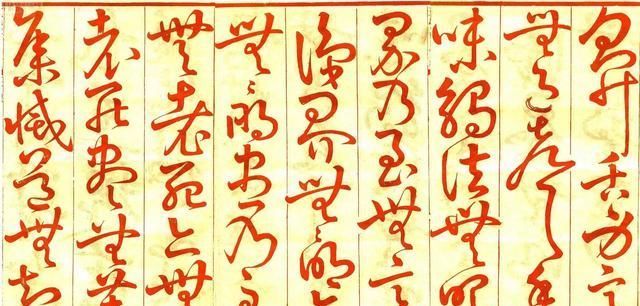 鼻舌身意
無色聲香
味觸法無眼
界乃至無意
識界無〻明亦
無〻明盡乃至
無老死亦無
老死盡無苦
集滅道無智